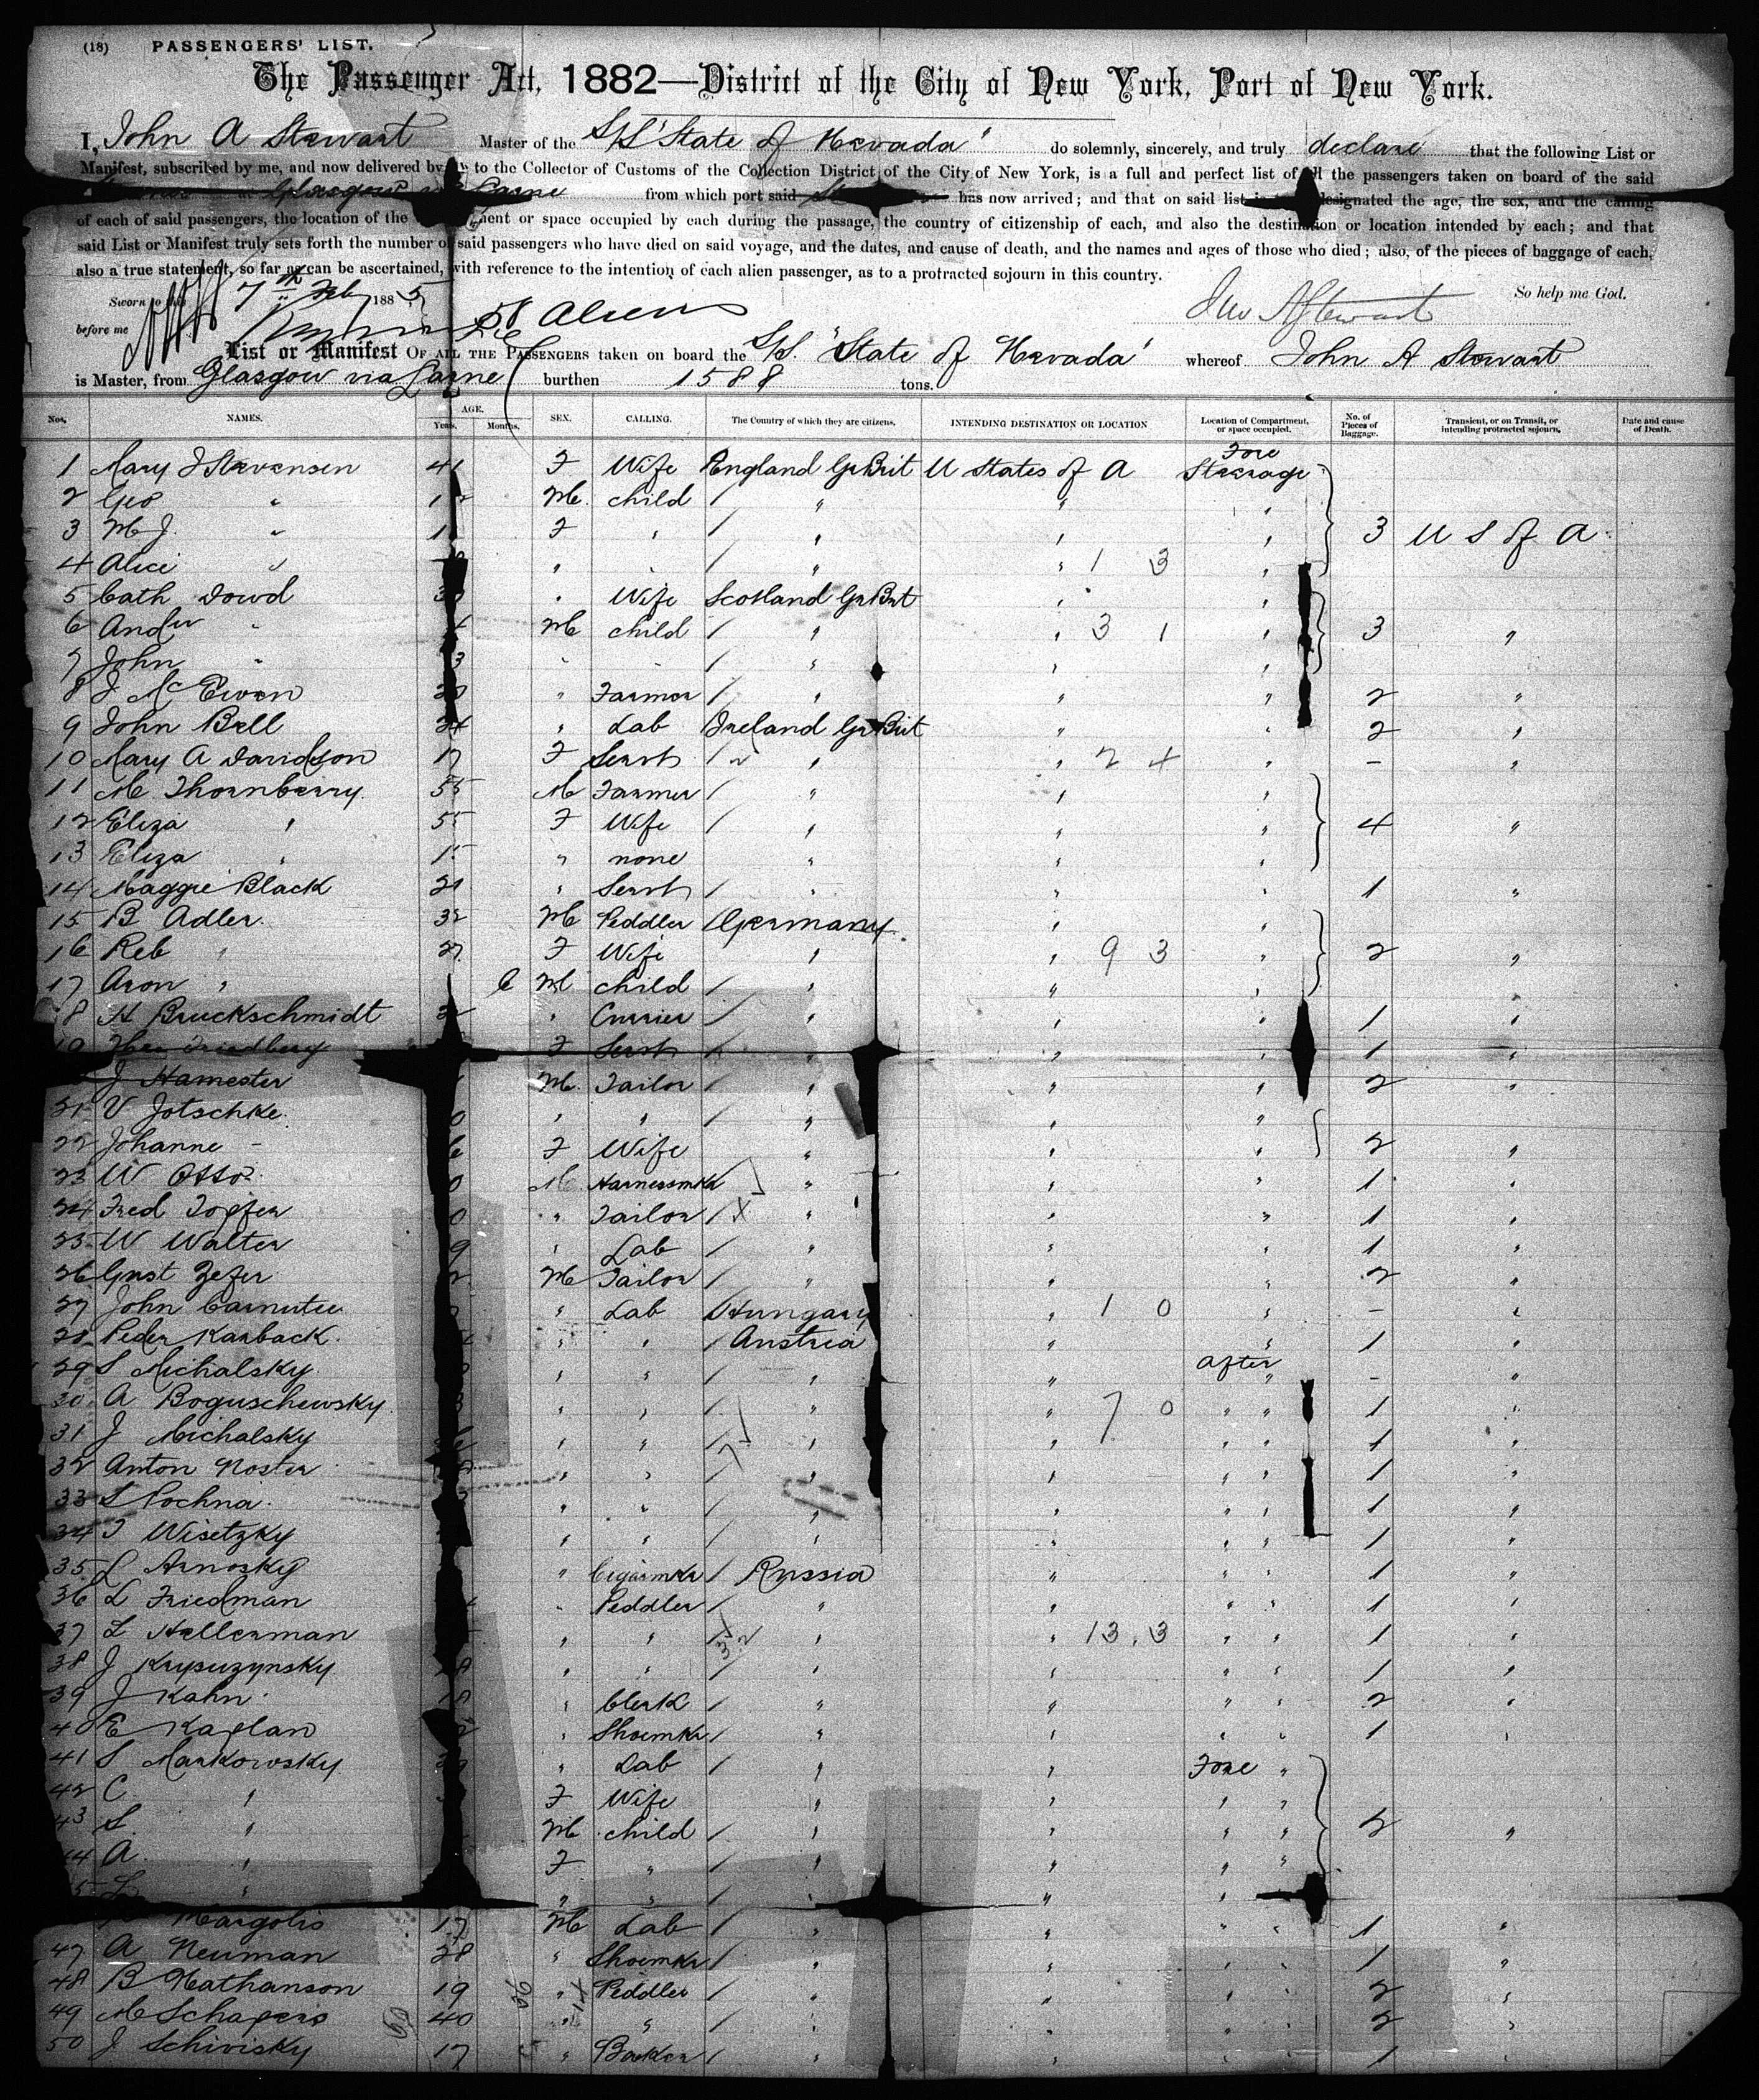 (18) PASSENGERS' LIST.
The Passenger Act, 1882—District of the City of New York, Port of New York.
I, John A Stewart Master of the S/S "State of Nevada" do solemnly, sincerely, and truly declare that the following List or
Manifest, subscribed by me, and now delivered by to the Collector of Customs of the Collection District of the City of New York, is a full and perfect list of all the passengers taken on board of the said
at Glasgow via Larne from which port said has now arrived; and that on said list designated the age, the sex, and the calling
of each of said passengers, the location of the or space occupied by each during the passage, the country of citizenship of each, and also the destination or location intended by each; and that
said List or Manifest truly sets forth the number of said passengers who have died on said voyage, and the dates, and cause of death, and the names and ages of those who died; also, of the pieces of baggage of each,
also a true statement, so far as can be ascertained, with reference to the intention of each alien passenger, as to a protracted sojourn in this country.
Sworn to this 7th Feb 1885 So help me God.
before me 58 Aliens Jno A Stewart
List or Manifest OF ALL THE PASSENGERS taken on board the S/S. "State of Nevada" whereof John A Stewart
is Master, from Glasgow via Larne burthen 1588 tons.
Nos. NAMES. AGE. Years. Months. SEX. CALLING. The Country of which they are citizens. INTENDING DESTINATION OR LOCATION Location of Compartment, or space occupied. No. of Pieces of Baggage. Transient, or on Transit, or intending protracted sojourn. Date and cause of Death.
1 Mary J Stevenson 41 F Wife England Gr Brit U States of A Fore Steerage
2 Geo " M. child / " " "
3 M J. " F " / " " " 3 U S of A.
4 Alice " " " / " " 1 3 "
5 Cath Dowd " Wife Scotland Gr Brit " "
6 Andw " M child / " " 3 1 " 3 "
7 John " " " / " " "
8 J McEwen " Farmer / " " " 2 "
9 John Bell 24 " Lab Ireland Gr Brit " " 2 "
10 Mary A Davidson 17 F Servt / " " 2 4 " - "
11 M Thornberry 55 M Farmer / " " "
12 Eliza " 55 F Wife / " " " 4 "
13 Eliza " 15 " none " " "
14 Maggie Black 21 " Servt / " " " 1 "
15 B Adler. 32 M Peddler / Germany. " "
16 Reb " 27 F Wife " " 9 3 " 2 "
17 Aron " 6 M child / " " "
8 H Bruckschmidt 32 " Currier / " " " 1 "
19 Friedberg F Servt / " " 1 "
J Hamester M. Tailor / " " " 2 "
21 V Jotschke. " " / " " "
22 Johanne - F Wife " " " 2 "
23 W Otto M. Harnessmkr " " " 1 "
24 Fred Topfer " Tailor / X " " " 1 "
25 W Walter " Lab / " " " 1 "
26 Gust Zefer M Tailor / " " " 2 "
27 John Carnutee " Lab Hungary " 1 0 " - "
28 Peder Karback. " " / Austria " " 1 "
29 S Michalsky. " " / " " After " - "
30 A Boguschewsky " " / " " 7 0 " " 1 "
31 J Michalsky " " / " " " " 1 "
32 Anton Noster " " / " " " " 1 "
33 S Pochna. " " / " " " " 1 "
34 T Wisetzky " " / " " " " 1 "
35 L Arnosky " Cigarmkr / Russia " " " 1 "
36 L Friedman " Peddler / " " " " 1 "
37 L Hellerman " " / " " 13.3 " " 1 "
38 J Krysuzynsky " " / " " " " 1 "
39 J Kahn. 18 " Clerk / " " " " 2 "
40 E Kaplan " Shoemkr / " " " " 1 "
41 S Markowsky. " Lab / " " Fore "
42 C " F Wife " " " "
43 S. " M child / " " " " 2 "
44 A. " F " / " " " "
5 " " " / " " "
Margolis 17 M Lab / " " " " 1 "
47 A Neuman 28 " Shoemkr / " " " " 1 "
48 B Nathanson 19 " Peddler / " " " " 2 "
49 M Schapero 40 " " / " " " " 2 "
50 J Schivisky 17 " Baker / " " " " 1 "